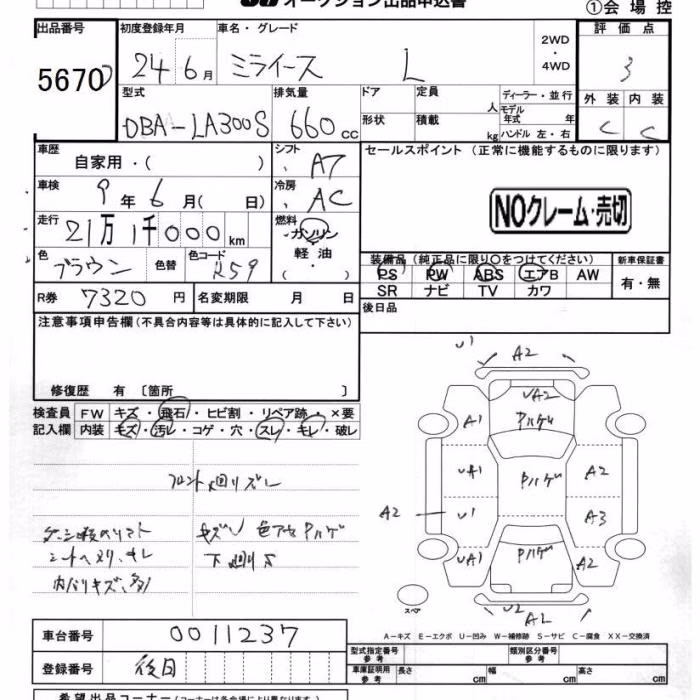 オークション出品申込書
①会場控
出品番号 初度登録年月 車名・グレード 2WD・4WD 評価点
5670 24年 6月 ミライース L 3
型式 排気量 ドア 定員 人 ディーラー・並行 外装 内装
モデル年式 年
DBA-LA300S 660cc 形状 積載 kg ハンドル 左・右 C C
車歴 自家用・( ) シフト AT セールスポイント (正常に機能するものに限ります)
車検 9年 6月( 日) 冷房 AC
NOクレーム・売切
走行 21万1千000km 燃料 ガソリン
軽油
・( )
色 ブラウン 色替 色コード R59
装備品(純正品に限り○をつけてください) 新車保証書
PS PW ABS エアB AW 有・無
SR ナビ TV カワ
R券 7320円 名変期限 月 日 後日品
注意事項申告欄(不具合内容等は具体的に記入して下さい)
修復歴 有〔箇所 〕
検査員 FW キズ・飛石・ヒビ割・リペア跡・×要
記入欄 内装 キズ・汚レ・コゲ・穴・スレ・キレ・破レ
U1 A2
A1 UA2 Pハゲ
UA1 Pハゲ A2
A2 U1 A3
UA1 Pハゲ A2
U2 A2
スペア
キズU 色アセ Pハゲ
下廻りS
A-キズ E-エクボ U-凹み W-補修跡 S-サビ C-腐食 XX-交換済
車台番号 0011237
型式指定番号 参考 類別区分番号 参考
登録番号 後日
車庫証明用 参考 長さ cm 幅 cm 高さ cm
希望出品コーナー(コーナーは各会場により異なります)